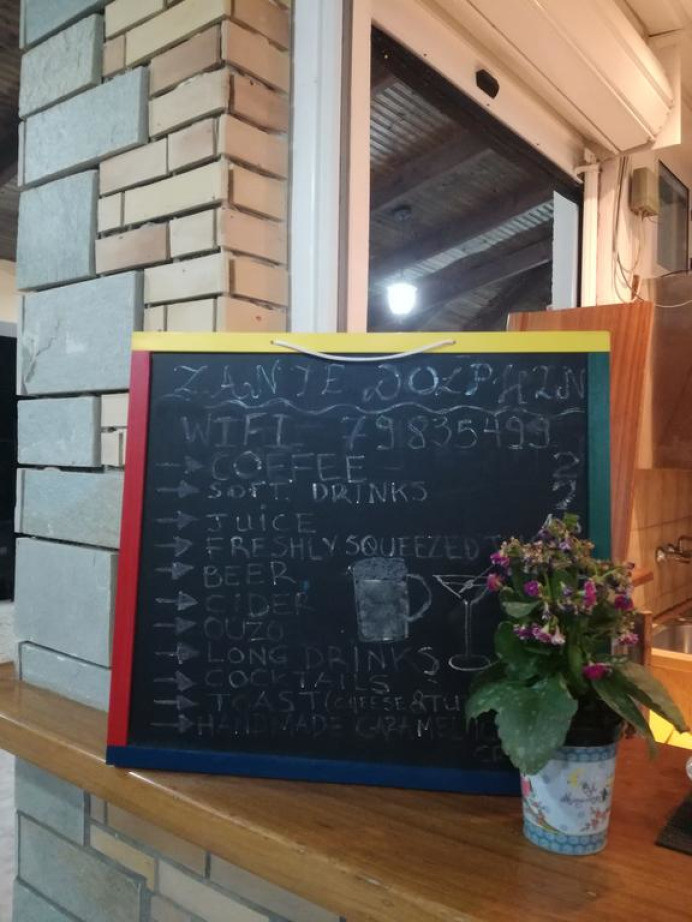 ZANTE DOLPHIN
WIFI - 79835499
→ COFFEE - 2
→ SOFT. DRINKS 2
→ JUICE
→ FRESHLY SQUEEZED
→ BEER
→ CIDER
→ OUZO
→ LONG DRINKS
→ COCKTAILS
→ TOAST (CHEESE &
→ HANDMADE